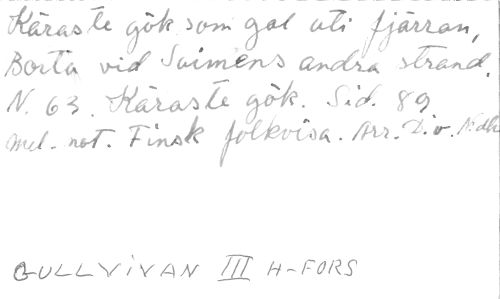 Käraste gök som gal uti fjärran,
Borta vid Saimens andra strand.
N. 63. Käraste gök. Sid. 89
Mel. not. Finsk folkvisa. Arr. D. v.
GULLVIVAN III H-FORS